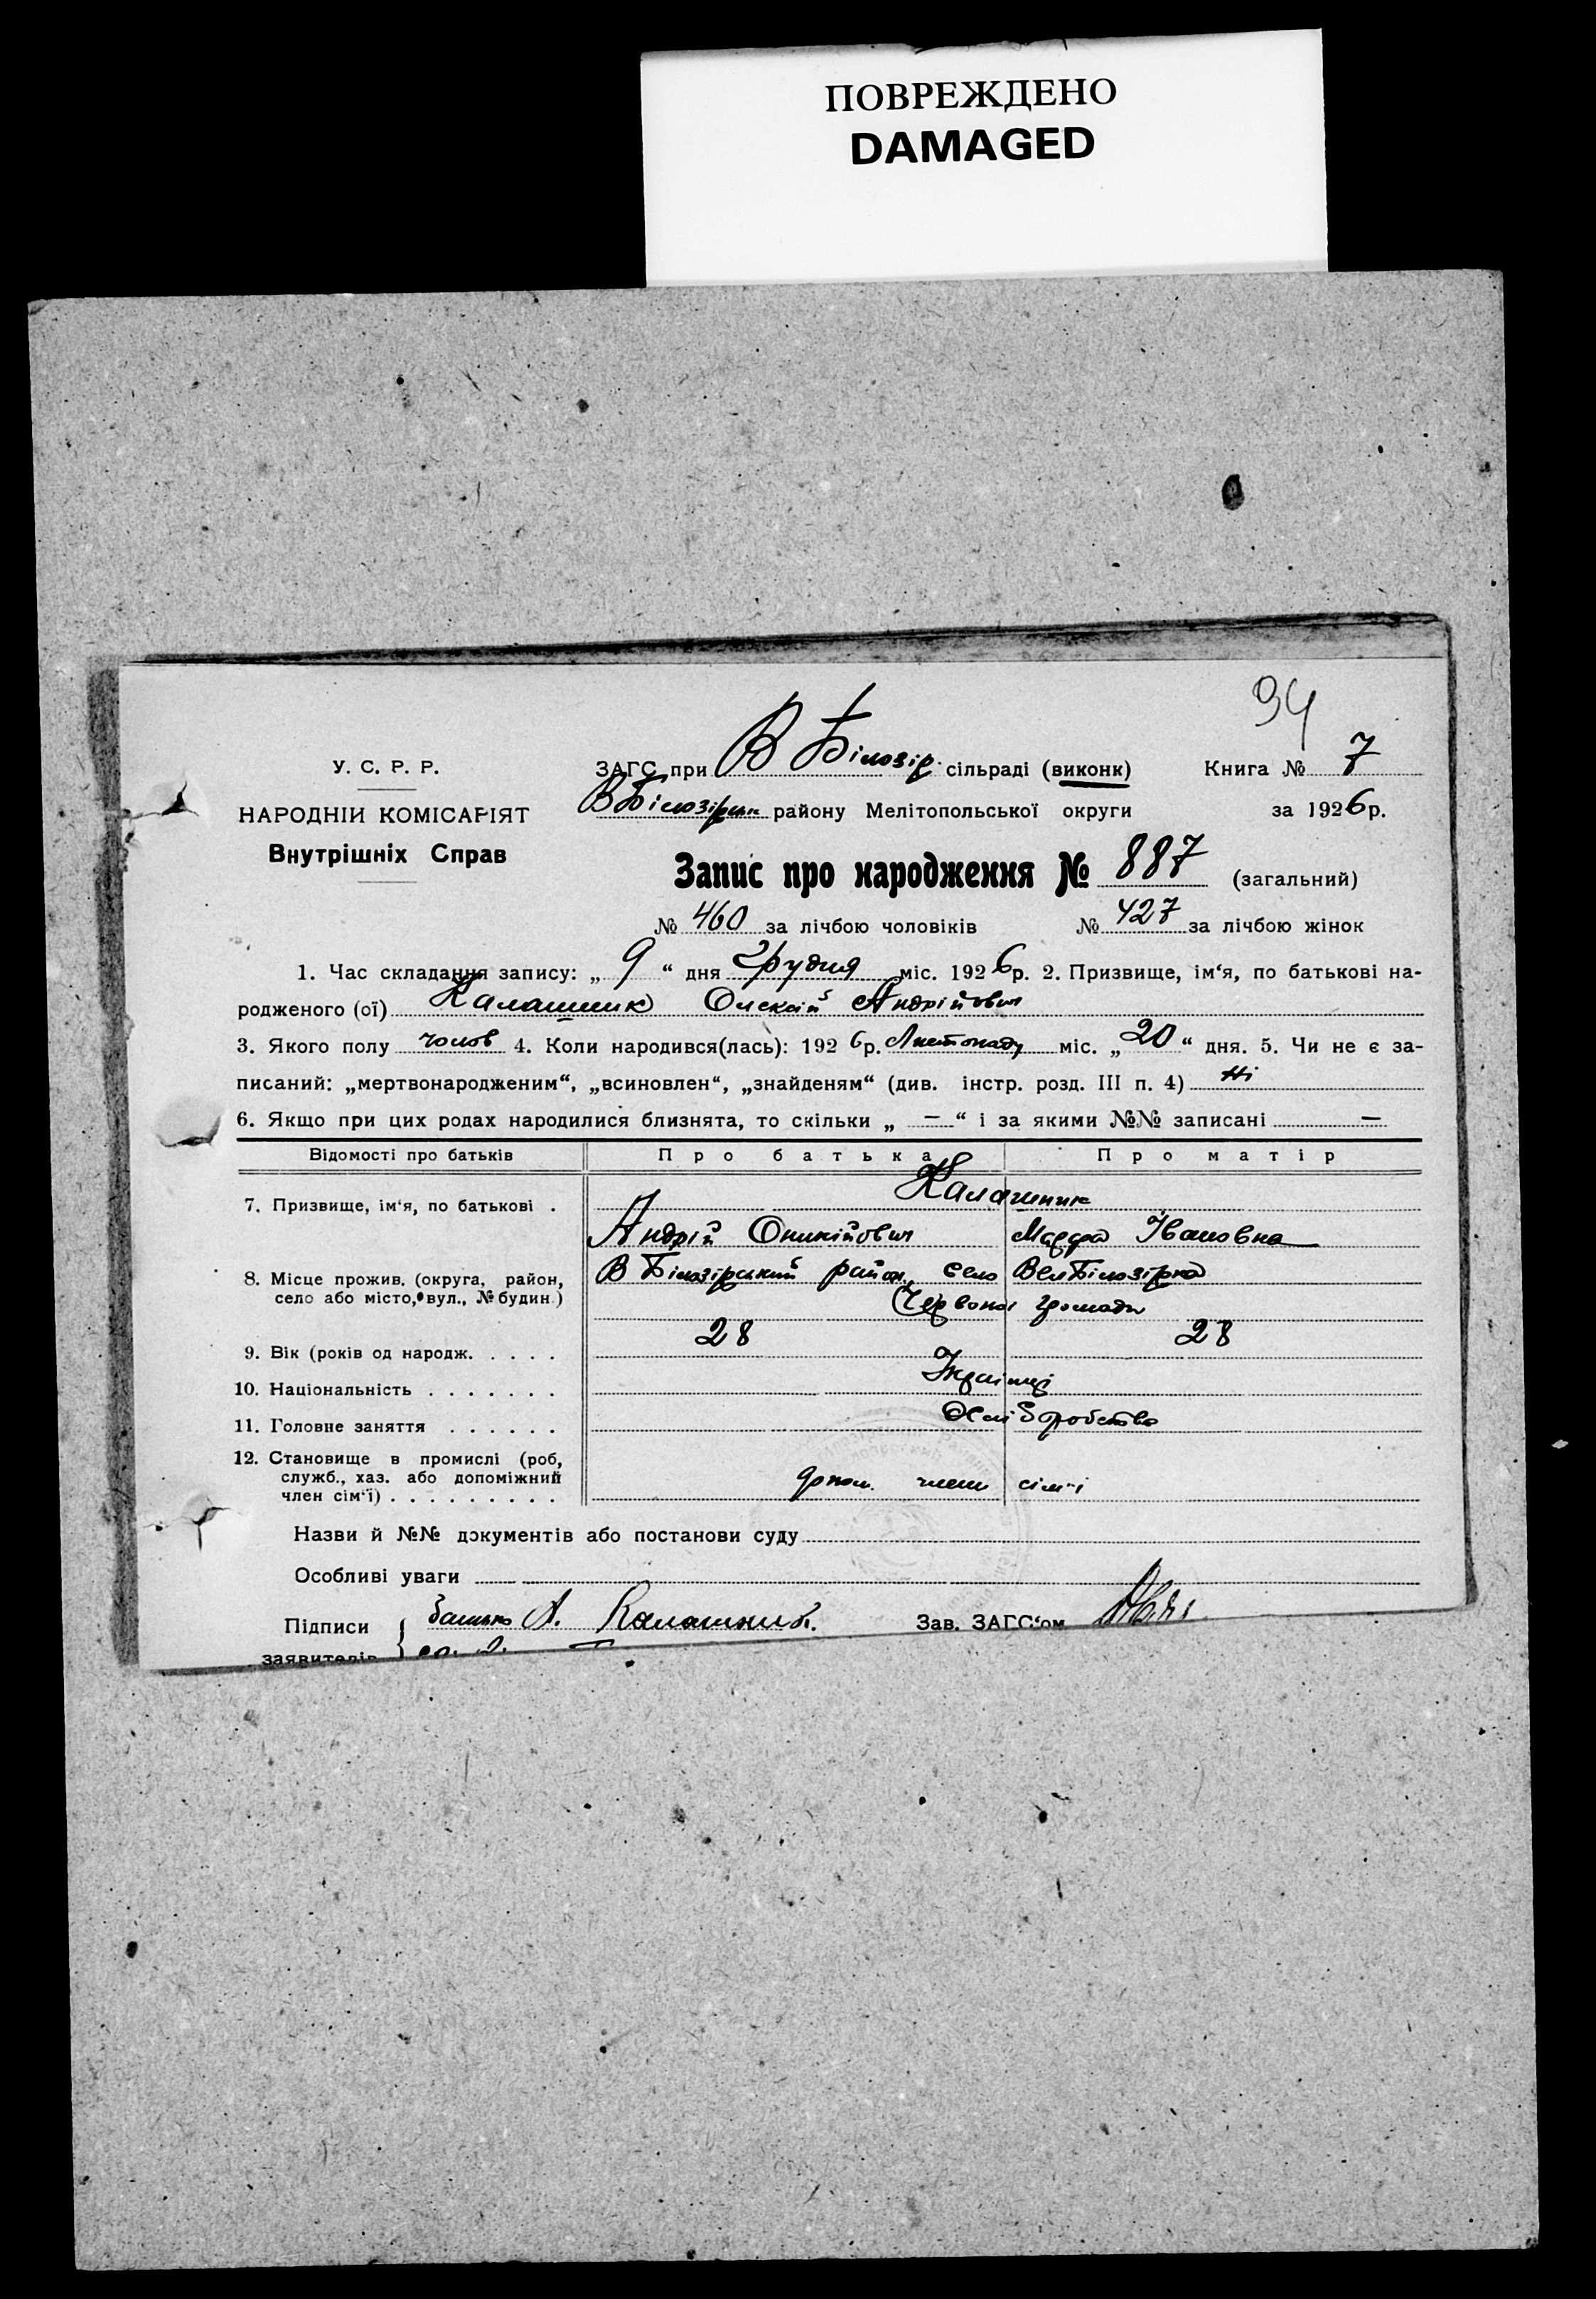 ПОВРЕЖДЕНО
DAMAGED
94
У. С. Р. Р.
НАРОДНІЙ КОМІСАРІЯТ
Внутрішніх Справ
ЗАГС при В Білозір. сільраді (виконк)
Книга № 7
В Білозірськ району Мелітопольської округи
за 1926 р.
Запис про народження № 887 (загальний)
№ 460 за лічбою чоловіків № 427 за лічбою жінок
1. Час складання запису: „ 9 “ дня Грудня міс. 1926 р. 2. Призвище, ім‘я, по батькові на-
родженого (ої) Калашник Олексій Андрійович
3. Якого полу чолов 4. Коли народився(лась): 1926 р. Листопаду міс. „ 20 “ дня. 5. Чи не є за-
писаний: „мертвонародженим“, „всиновлен“, „знайденям“ (див. інстр. розд. III п. 4) Ні
6. Якщо при цих родах народилися близнята, то скільки „ — “ і за якими №№ записані —
Відомості про батьків Про батька Про матір
7. Призвище, ім‘я, по батькові . Калашник
Андрій Оникійович Марфа Івановна
8. Місце прожив. (округа, район, село або місто, вул., № будин.) В Білозірський район, село Вел Білозірка
Червоної громади
9. Вік (років од народж. . . . . 28 28
10. Національність . . . . . . . Українці
11. Головне заняття . . . . . . Хліборобство
12. Становище в промислі (роб,
служб., хаз. або допоміжний
член сім‘ї) . . . . . . . . . допом. члени сім-ї
Назви й №№ документів або постанови суду
Особливі уваги
Підписи батько А. Калашник. Зав. ЗАГС‘ом
заявителів